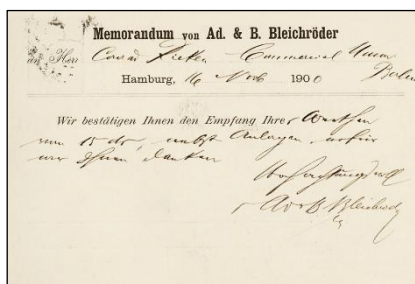 Memorandum von Ad. & B. Bleichröder
an Herr Conrad Fieken Commercial Union
Hamburg, 16 Novb 1900 Berlin
Wir bestätigen Ihnen den Empfang Ihres Werthen
vom 15 ds, nebst Anlagen, wofür
wir Ihnen danken
Hochachtungsvoll
Ad & B. Bleichröder